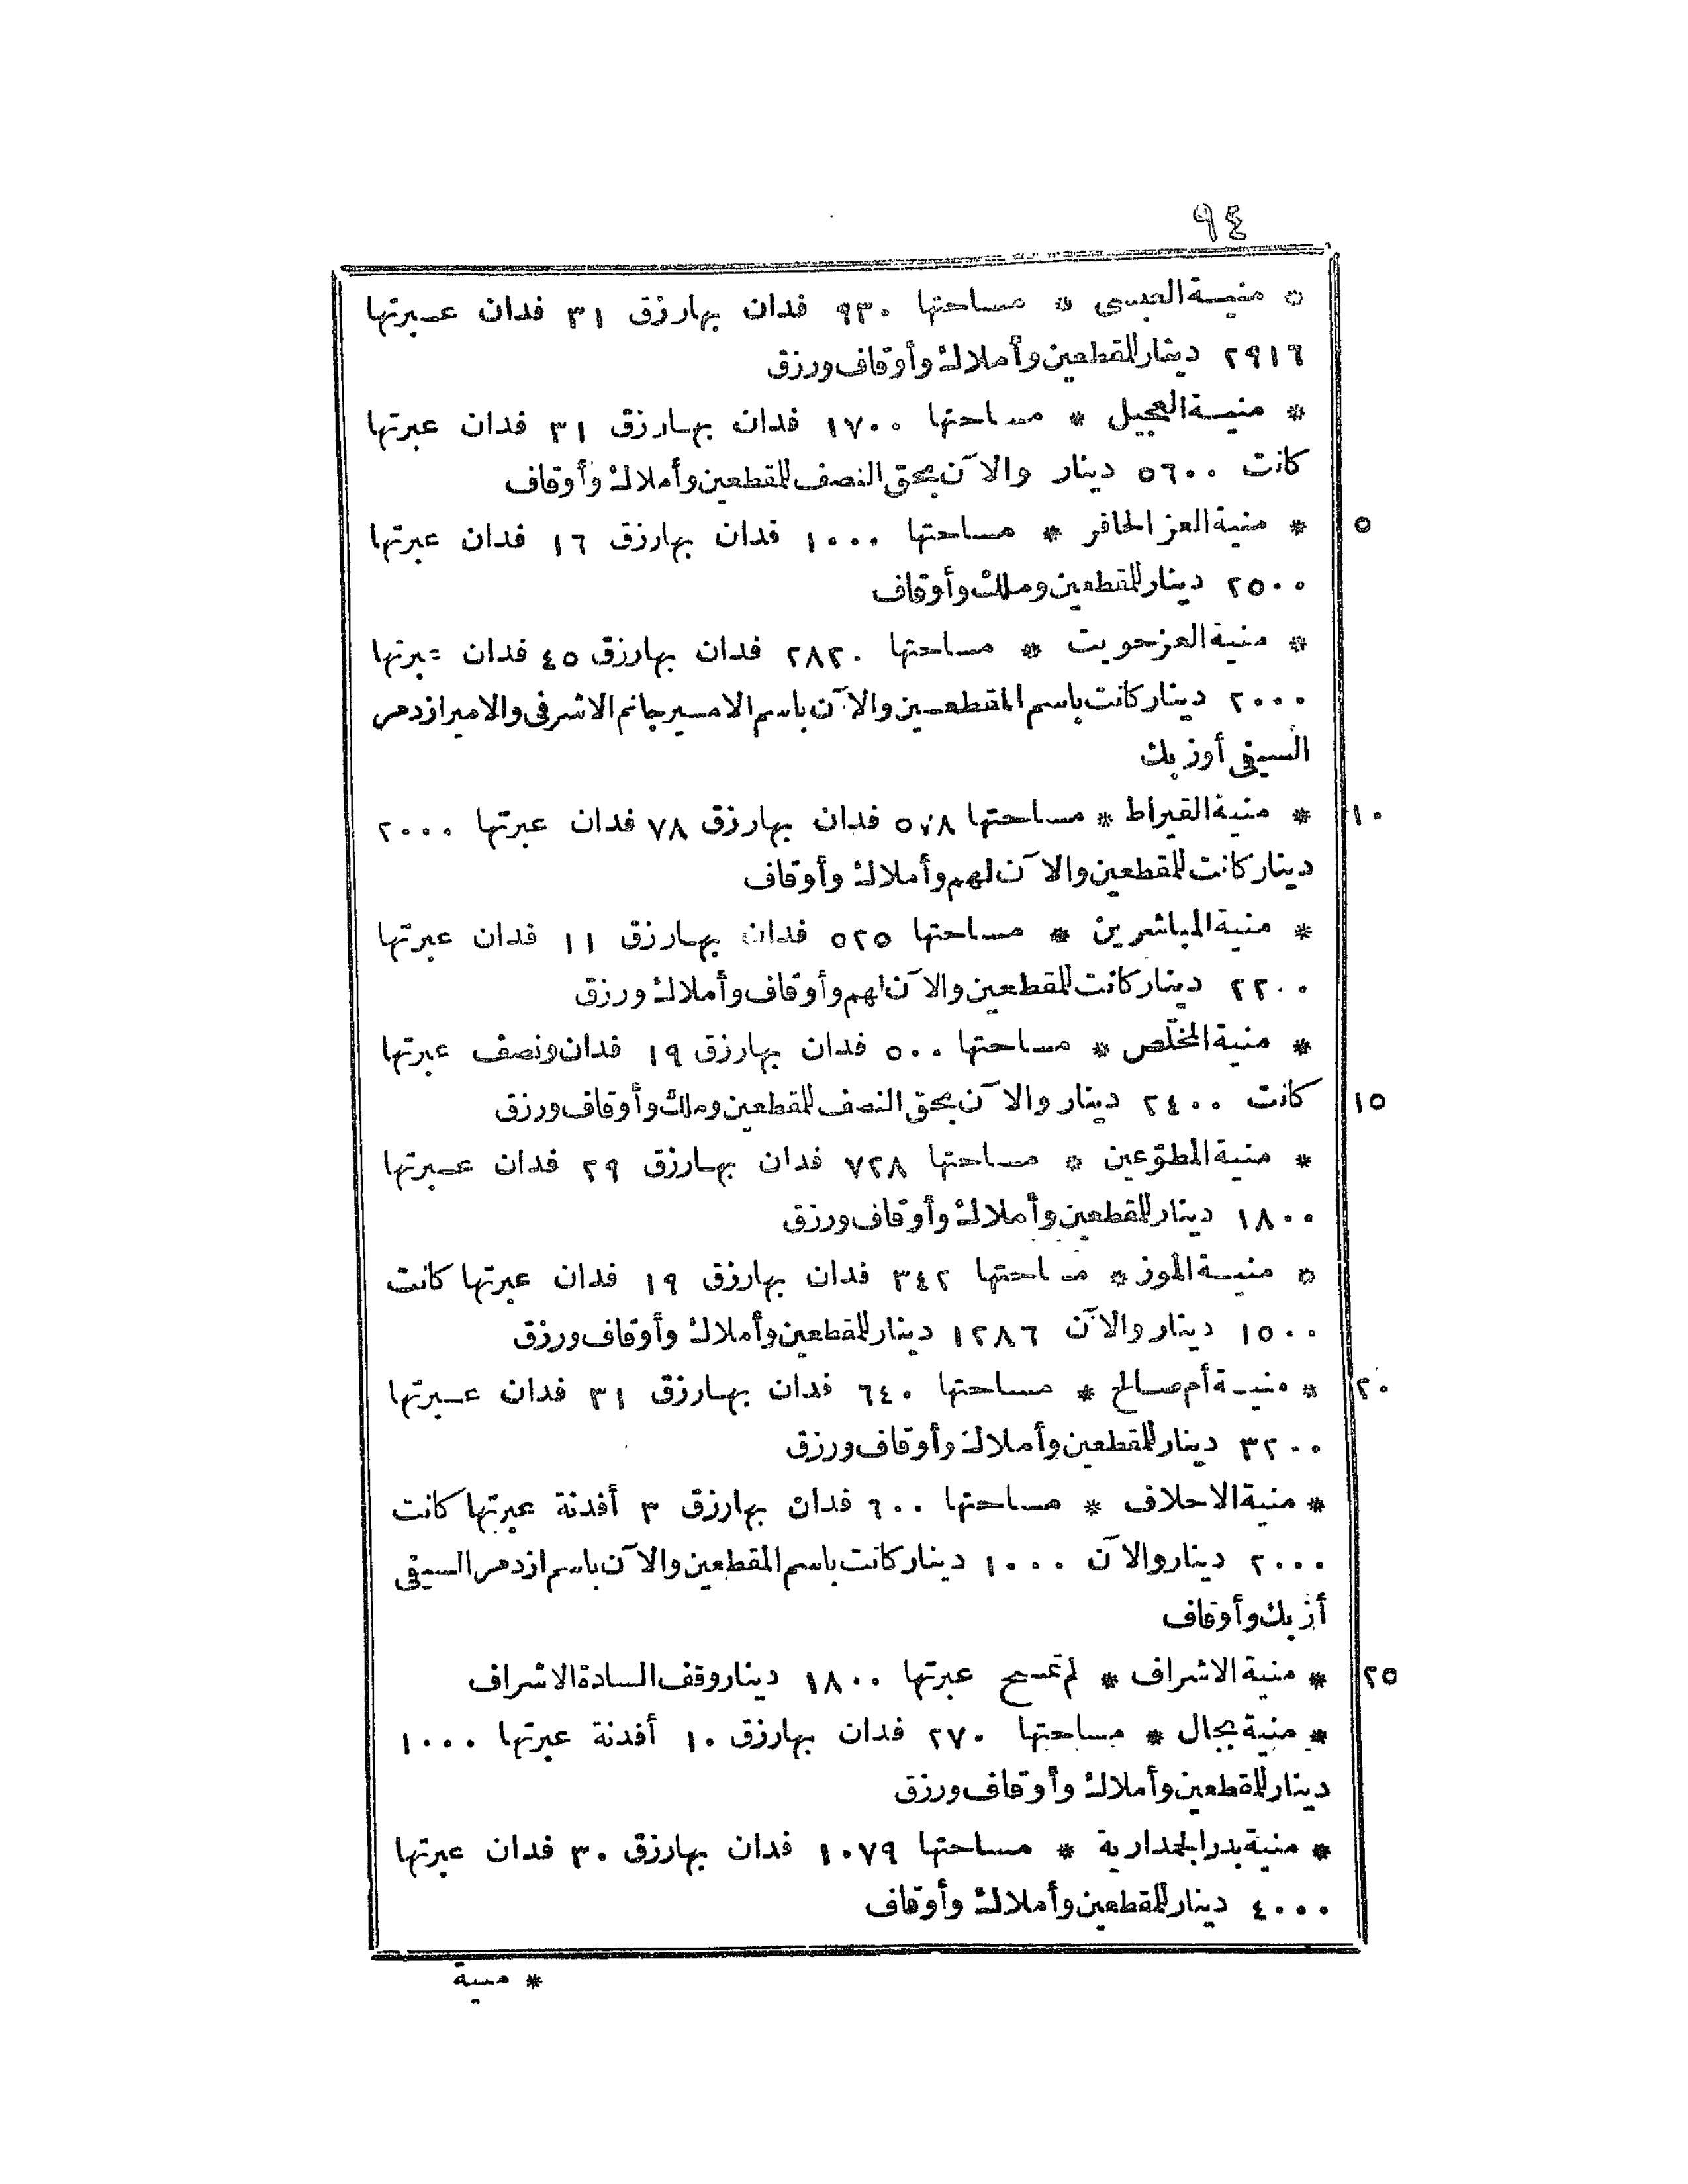 ٩٤
* منيـة العبسى * مساحتها ٩٣٠ فدان بها رزق ٣١ فدان عـبرتها
٢٩١٦ دينار للمقطعين وأملاك وأوقاف ورزق
* منيـة العجيل * مساحتها ١٧٠٠ فدان بهـا رزق ٣١ فدان عبرتها
كانت ٥٦٠٠ دينار والآن بحق النصف للمقطعين وأملاك وأوقاف
٥ * منية العز الحافر * مساحتها ١٠٠٠ فدان بها رزق ١٦ فدان عبرتها
٢٥٠٠ دينار للمقطعين وملك وأوقاف
* منية العز حويت * مساحتها ٢٨٢٠ فدان بها رزق ٤٥ فدان عبرتها
٢٠٠٠ دينار كانت باسم المقطعـين والآن باسم الامـير جانم الاشرفى والامير ازدمر
السيفى أوزبك
١٠ * منية القيراط * مساحتها ٥٧٨ فدان بها رزق ٧٨ فدان عبرتها ٢٠٠٠
دينار كانت للمقطعين والآن لهم وأملاك وأوقاف
* منية المباشرين * مساحتها ٥٢٥ فدان بهـا رزق ١١ فدان عبرتها
٢٢٠٠ دينار كانت للمقطعين والآن لهم وأوقاف وأملاك ورزق
* منية المخلّص * مساحتها ٥٠٠ فدان بها رزق ١٩ فدان ونصف عبرتها
١٥ كانت ٢٤٠٠ دينار والآن بحق النصف للمقطعين وملك وأوقاف ورزق
* منية المطوّعين * مساحتها ٧٢٨ فدان بهـا رزق ٢٩ فدان عـبرتها
١٨٠٠ دينار للمقطعين وأملاك وأوقاف ورزق
* منيـة الموز * مساحتها ٣٤٢ فدان بها رزق ١٩ فدان عبرتها كانت
١٥٠٠ دينار والآن ١٢٨٦ دينار للمقطعين وأملاك وأوقاف ورزق
٢٠ * منيـة أم صـالح * مساحتها ٦٤٠ فدان بهـا رزق ٣١ فدان عـبرتها
٣٢٠٠ دينار للمقطعين وأملاك وأوقاف ورزق
* منية الاحلاف * مساحتها ٦٠٠ فدان بها رزق ٣ أفدنة عبرتها كانت
٢٠٠٠ دينار والآن ١٠٠٠ دينار كانت باسم المقطعين والآن باسم ازدمر السيفى
أزبك وأوقاف
٢٥ * منية الاشراف * لم تمسح عبرتها ١٨٠٠ دينار وقف السادة الاشراف
* منية بجال * مساحتها ٢٧٠ فدان بها رزق ١٠ أفدنة عبرتها ١٠٠٠
دينار للمقطعين وأملاك وأوقاف ورزق
* منية بدر الجمدارية * مساحتها ١٠٧٩ فدان بها رزق ٣٠ فدان عبرتها
٤٠٠٠ دينار للمقطعين وأملاك وأوقاف
* منية